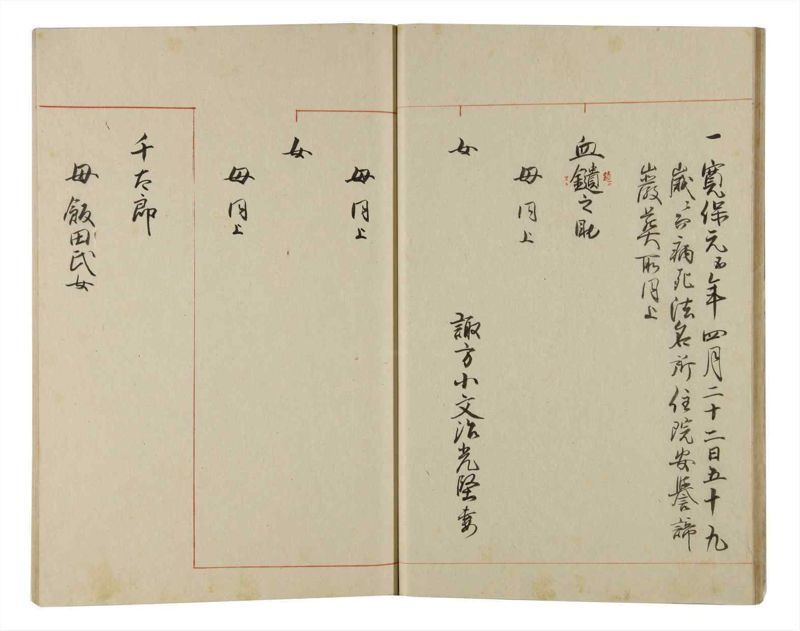 一寛保元酉年四月二十二日五十九
歳ニ而病死法名所住院安誉諦
巌葬所同上
血鑓之助
母同上
女
諏方小文治光堅妻
母同上
女
母同上
千太郎
母飯田氏女